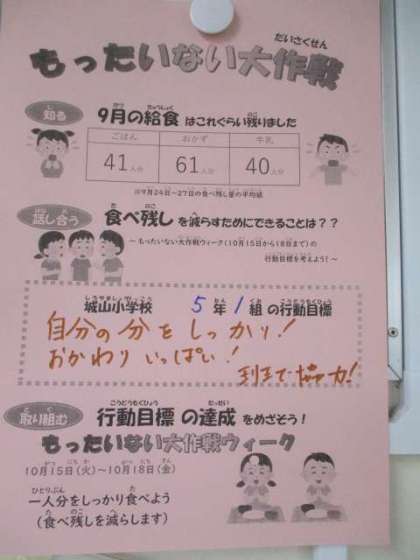 もったいない大作戦
知る
9月の給食はこれぐらい残りました
ごはん おかず 牛乳
41人分 61人分 40人分
※9月24日~27日の食べ残し量の平均値
話し合う
食べ残しを減らすためにできることは??
~もったいない大作戦ウィーク(10月15日から18日まで)の
行動目標を考えよう!~
城山小学校 5年1組の行動目標
自分の分をしっかり!
おかわりいっぱい!
班まで協力!
取り組む
行動目標の達成をめざそう!
もったいない大作戦ウィーク
10月15日(火)~10月18日(金)
一人分をしっかり食べよう
(食べ残しを減らします)